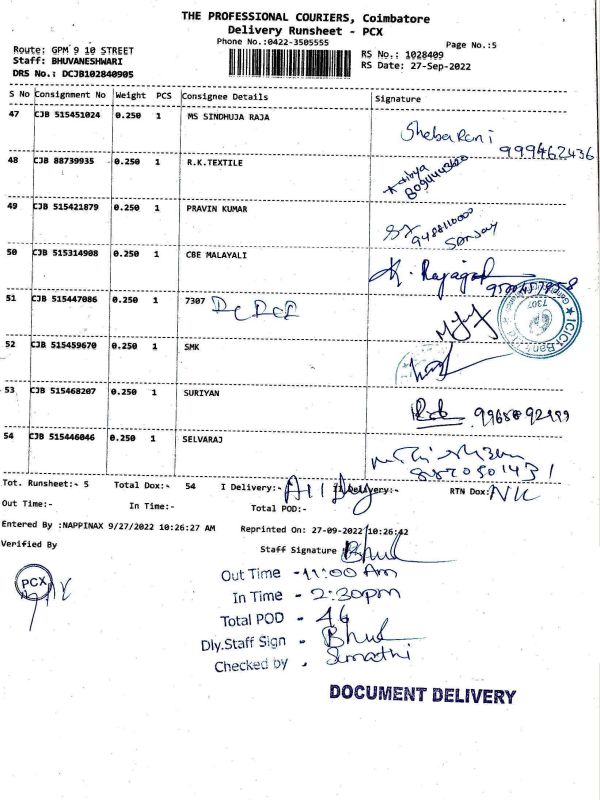 THE PROFESSIONAL COURIERS, Coimbatore
Delivery Runsheet - PCX
Phone No.:0422-3505555
Page No.:5
Route: GPM 9 10 STREET
Staff: BHUVANESHWARI
DRS No.: DCJB102840905
RS No.: 1028409
RS Date: 27-Sep-2022
S No Consignment No Weight PCS Consignee Details Signature
47 CJB 515451024 0.250 1 MS SINDHUJA RAJA
Sheba Rani 999462436
48 CJB 88739935 0.250 1 R.K.TEXTILE
49 CJB 515421879 0.250 1 PRAVIN KUMAR
9488110000
Sanjay
50 CJB 515314908 0.250 1 CBE MALAYALI
51 CJB 515447086 0.250 1 7307
ICICI Bank
7307
52 CJB 515459670 0.250 1 SMK
53 CJB 515468207 0.250 1 SURIYAN
54 CJB 515446046 0.250 1 SELVARAJ
Tot. Runsheet:- 5 Total Dox:- 54 I Delivery:- All Dly II Delivery:- RTN Dox: NIL
Out Time:- In Time:- Total POD:-
Entered By :NAPPINAX 9/27/2022 10:26:27 AM Reprinted On: 27-09-2022 10:26:42
Verified By Staff Signature
PCX
Out Time - 11:00 Am
In Time - 2:30pm
Total POD - 46
Dly.Staff Sign -
Checked by . Sumathi
DOCUMENT DELIVERY